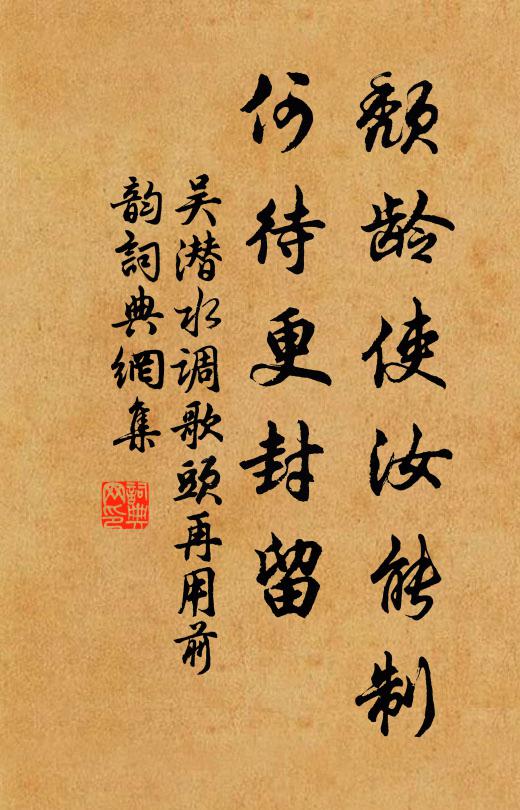 颓龄使汝能制
何待更封留
吴潜水调歌头再用前
韵词典網集
詞典
网印